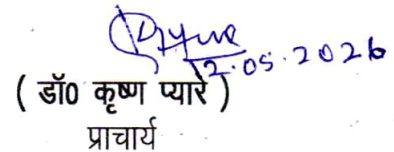 12.05.2026
( डॉ0 कृष्ण प्यारे )
प्राचार्य